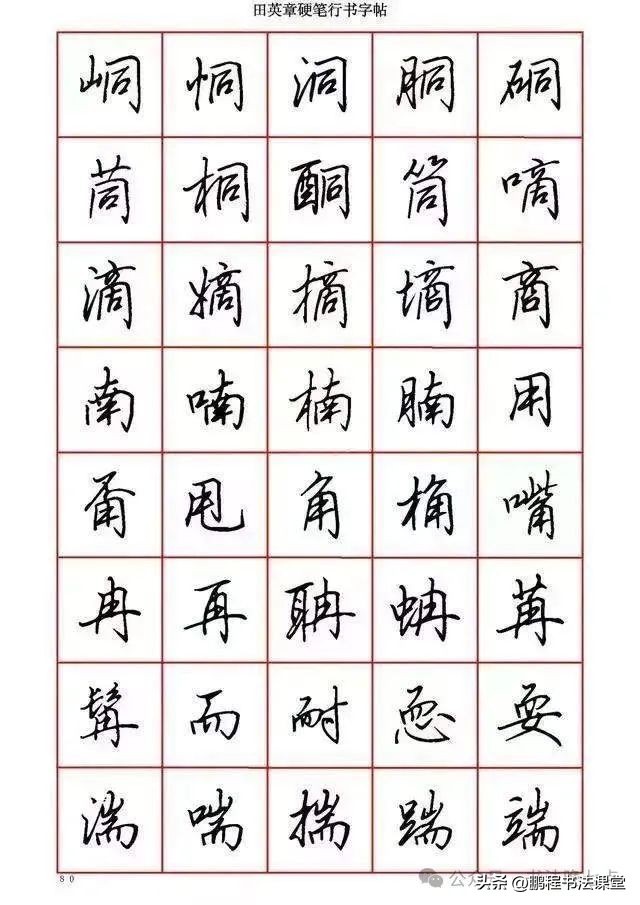 田英章硬笔行书字帖
峒 恫 洞 胴 硐
茼 桐 酮 筒 嘀
滴 嫡 摘 墒 商
南 喃 楠 腩 用
甩 角 桷 嘴
冉 再 聃 蚺 苒
髯 而 耐 恧 耍
湍 喘 揣 踹 端
80
公众号
头条 @鹏程书法课堂